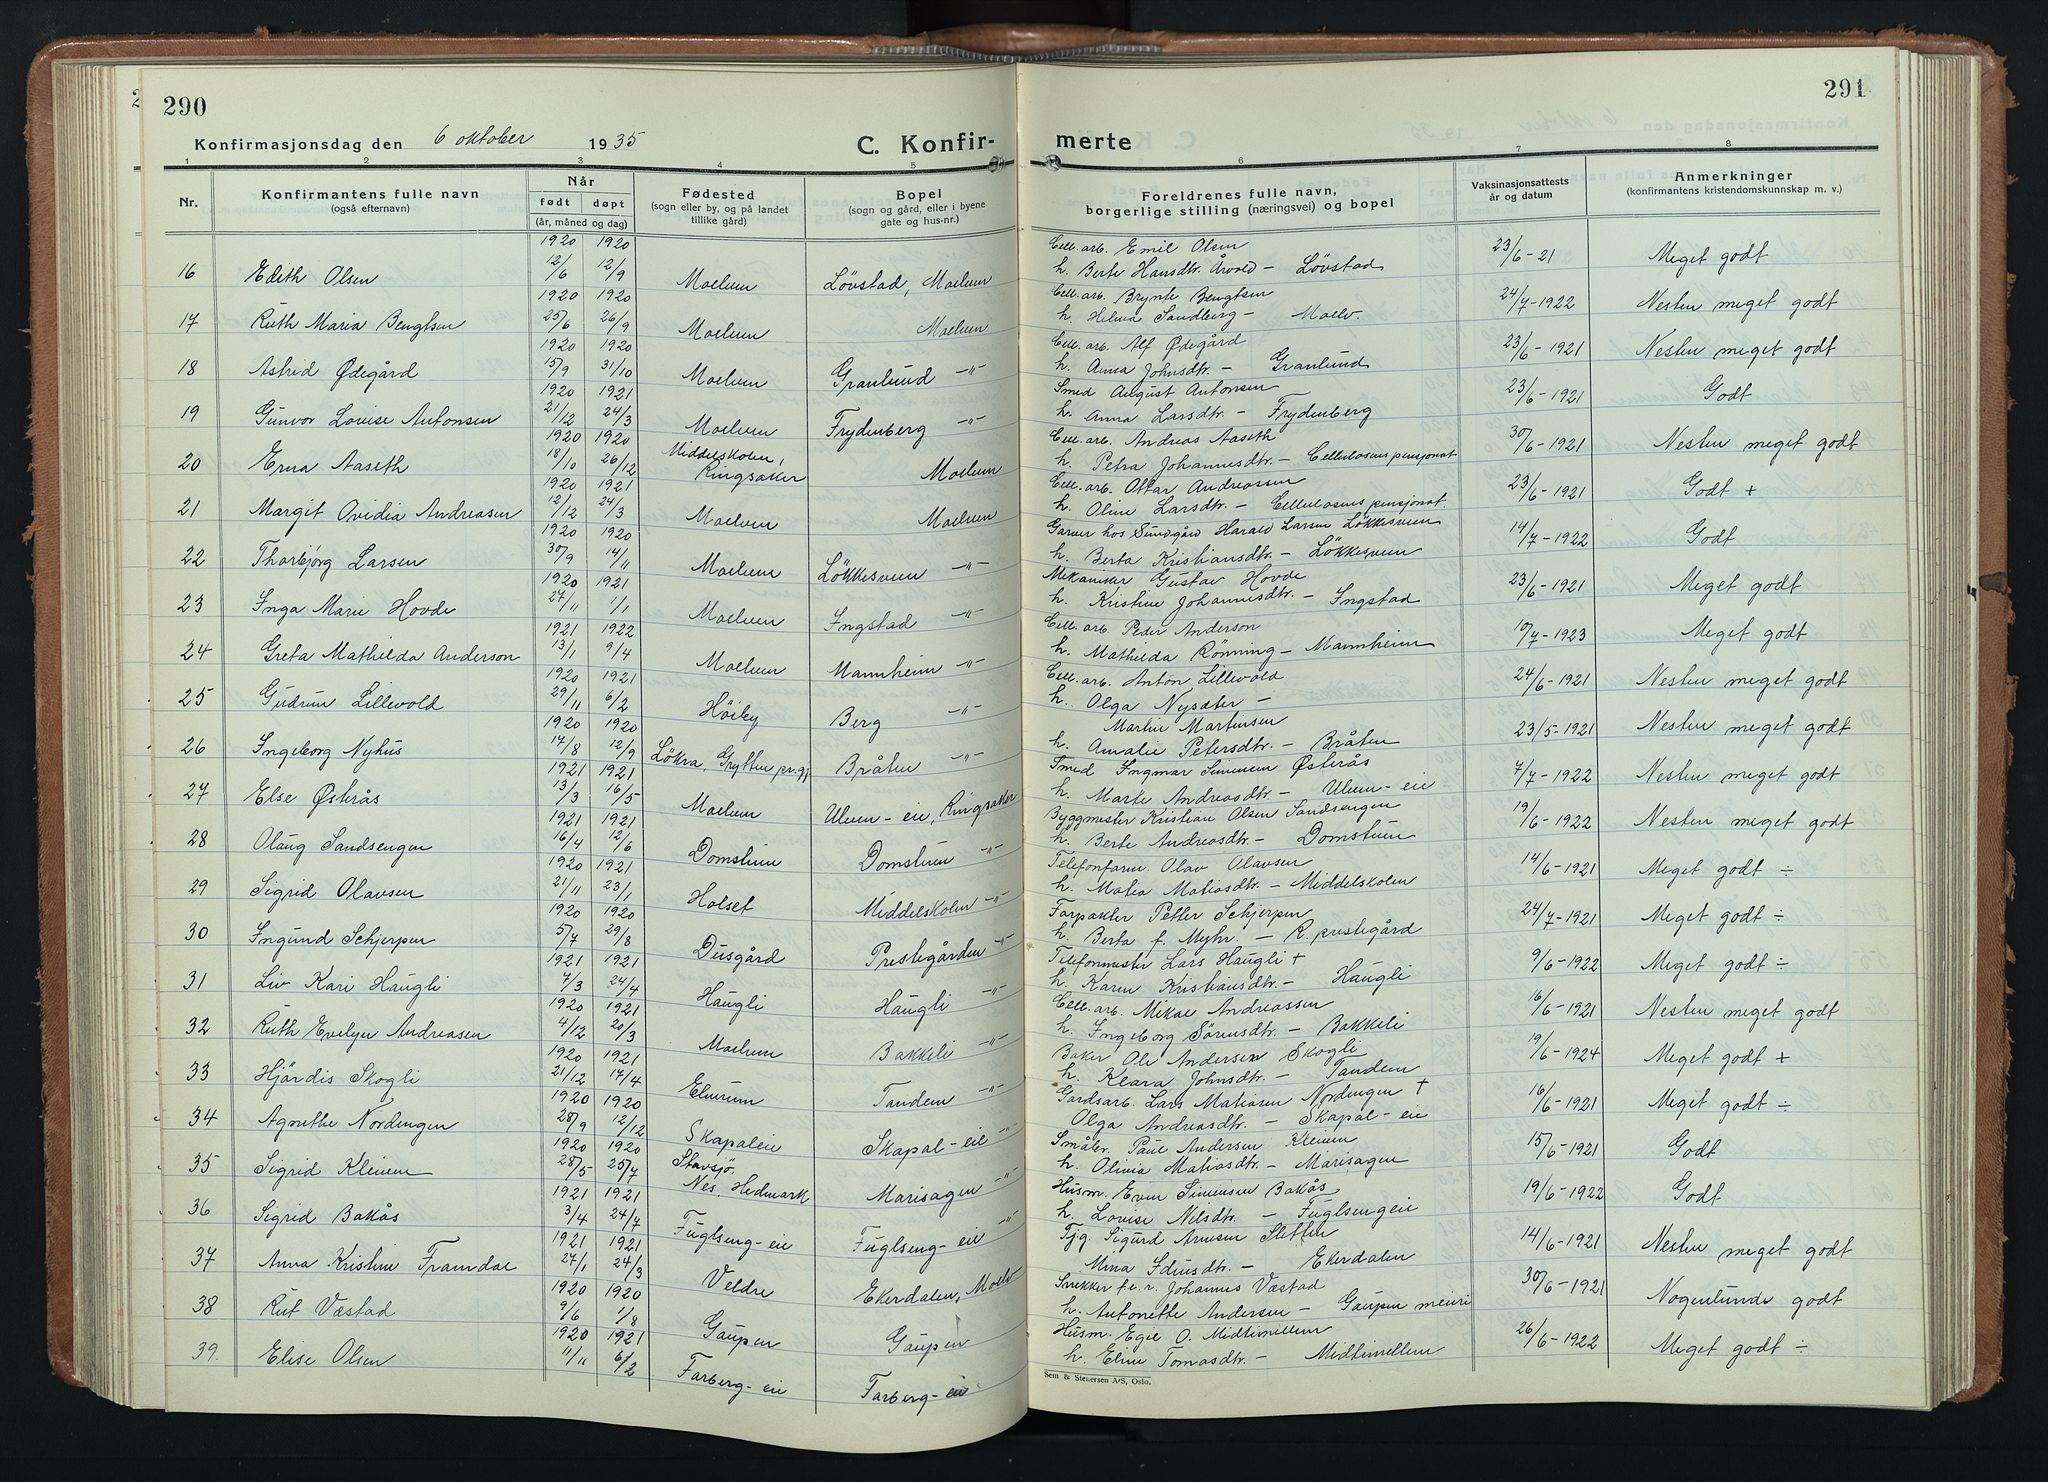 290
Konfirmasjonsdag den 6 oktober 1935
C. Konfir-
1 2 3 4 5
Nr.
Konfirmantens fulle navn
(også efternavn)
Når
født døpt
(år, måned og dag)
Fødested
(sogn eller by, og på landet
tillike gård)
Bopel
(sogn og gård, eller i byene
gate og hus-nr.)
1920 1920
16 Edith Olsen 12/6 12/9 Moelven Løvstad, Moelven
1920 1920
17 Ruth Maria Bengtsen 25/6 26/9 Moelven Moelven
1920 1920
18 Astrid Ødegård 15/9 31/10 Moelven Granlund -"-
1920 1921
19 Gunvor Louise Antonsen 21/12 24/3 Moelven Frydenberg -"-
1920 1920
20 Erna Aaseth 18/10 26/12 Middelskolen, Ringsaker Moelven
1920 1921
21 Margit Ovidia Andreasen 12/12 24/3 Moelven Moelven
1920 1920
22 Thorbjörg Larsen 30/9 14/11 Moelven Løkkesveen -"-
1920 1921
23 Inga Marie Hovde 27/11 1/1 Moelven Ingstad -"-
1921 1922
24 Greta Mathilda Anderson 13/1 9/4 Moelven Mannheim -"-
1920 1921
25 Gudrun Lillevold 29/11 6/2 Höiby Berg -"-
1920 1920
26 Ingeborg Nyhus 14/8 12/9 Løkra, Grytten pr.gj Bråten -"-
1921 1921
27 Else Østerås 13/3 16/5 Moelven Ulven-eie, Ringsaker
1921 1921
28 Olaug Sandsengen 16/4 12/6 Domstuen Domstuen -"-
1920 1921
29 Sigrid Olavsen 21/11 23/1 Holset Middelskolen -"-
1920 1920
30 Ingund Schjerpen 5/7 29/8 Dusgård Prestegården -"-
1921 1921
31 Liv Kari Haugli 7/3 24/4 Haugli Haugli -"-
1920 1921
32 Ruth Evelyn Andreasen 4/12 20/3 Moelven Bakkeli -"-
1920 1921
33 Hjördis Skogli 21/12 17/4 Elverum Tandem -"-
1920 1920
34 Agnethe Nordengen 28/9 12/12 Skapaleie Skapal-eie -"-
1920 1920
35 Sigrid Kleiven 28/5 25/7 Stavsjö, Nes. Hedmark Marisagen -"-
1921 1921
36 Sigrid Bakås 3/4 24/7 Fuglseng-eie Fuglseng-eie -"-
1921 1921
37 Anna Kristine Framdal 27/1 24/3 Veldre Ekerdalen, Moelv
1920 1920
38 Rut Væstad 9/6 1/8 Gaupen Gaupen
1920 1921
39. Else Olsen 11/11 6/2 Farberg-eie Farberg-eie
291
merte
6 7 8
Foreldrenes fulle navn,
borgerlige stilling (næringsvei) og bopel
Vaksinasjonsattests
år og datum
Anmerkninger
(konfirmantens kristendomskunnskap m. v.)
Cell. arb. Emil Olsen
h. Berte Hansdtr. Årvold - Løvstad 23/6-21 Meget godt
Cell. arb. Brynte Bengtsen
h. Helma Sandberg - Moelv. 24/7-1922 Nesten meget godt
Cell. arb. Alf Ødegård
h. Anna Johnsdtr. - Granlund 23/6-1921 Nesten meget godt
Smed August Antonsen
h. Anna Larsdtr. - Frydenberg 23/6-1921 Godt
Cell. arb. Andreas Aaseth
h. Petra Johannesdtr. - Cellulosens pensjonat 30/6-1921 Nesten meget godt
Cell. arb. Ottar Andreassen
h. Oline Larsdtr. - Cellulosens pensjonat. 23/6-1921 Godt +
Garver hos Sundgård Harald Larsen Løkkesveen
h. Berta Kristiansdtr. - Løkkesveen 14/7-1922 Godt
Mekaniker Gustav Hovde
h. Kristine Johannesdtr. - Ingstad 23/6-1921 Meget godt
Cell. arb. Peder Anderson
h. Mathilda Rønning - Mannheim 10/7-1923 Meget godt
Cell. arb. Anton Lillevold
h. Olga Nysæter - 24/6-1921 Nesten meget godt
Martin Martinsen
h. Amalie Petersdtr. - Bråten 23/5-1921 Nesten meget godt
Smed Ingmar Simensen Østerås
h. Marte Andreasdtr. - Ulven-eie 7/7-1922 Nesten meget godt
Byggmester Kristian Olsen Sandsengen
h. Berte Andreasdtr. - Domstuen 19/6-1922 Nesten meget godt
Telefonform Olav Olavsen
h. Matia Matiasdtr. - Middelskolen 14/6-1921 Meget godt ÷
Forpakter Petter Schjerpen
h. Berta f. Myhr. - R. prestegård 24/7-1921 Meget godt ÷
Telefonmester Lars Haugli +
h. Karen Kristiansdtr. - Haugli 9/6-1922 Meget godt ÷
Cell. arb. Mikal Andreassen
h. Ingeborg Sörensdtr. - Bakkeli 16/6-1921 Nesten meget godt
Baker Ole Andersen Skogli
h. Klara Johnsdtr. - Tandem 19/6-1924 Meget godt +
Gardsarb. Lars Matiasen Nordengen +
Olga Andreasdtr. - Skapal-eie 16/6-1921 Meget godt ÷
Småbr. Paul Andersen Kleiven
h. Olivia Matiasdtr. - Marisagen 15/6-1921 Godt
Husm. Even Simensen Bakås
h. Lovise Nilsdtr. - Fuglsengeie 19/6-1922 Godt
Tjg. Sigurd Arnesen Sletten
Mina Idensdtr. - Ekerdalen 14/6-1921 Nesten meget godt
Snekker f.e.r. Johannes Væstad
h. Antonette Andersen - Gaupen meieri 30/6-1921 Nogenlunde godt
Husm. Egil O. Midtimellem
h. Eline Tomasdtr. - Midtimellem 26/6-1922 Meget godt ÷
Sem & Stenersen A/S, Oslo.